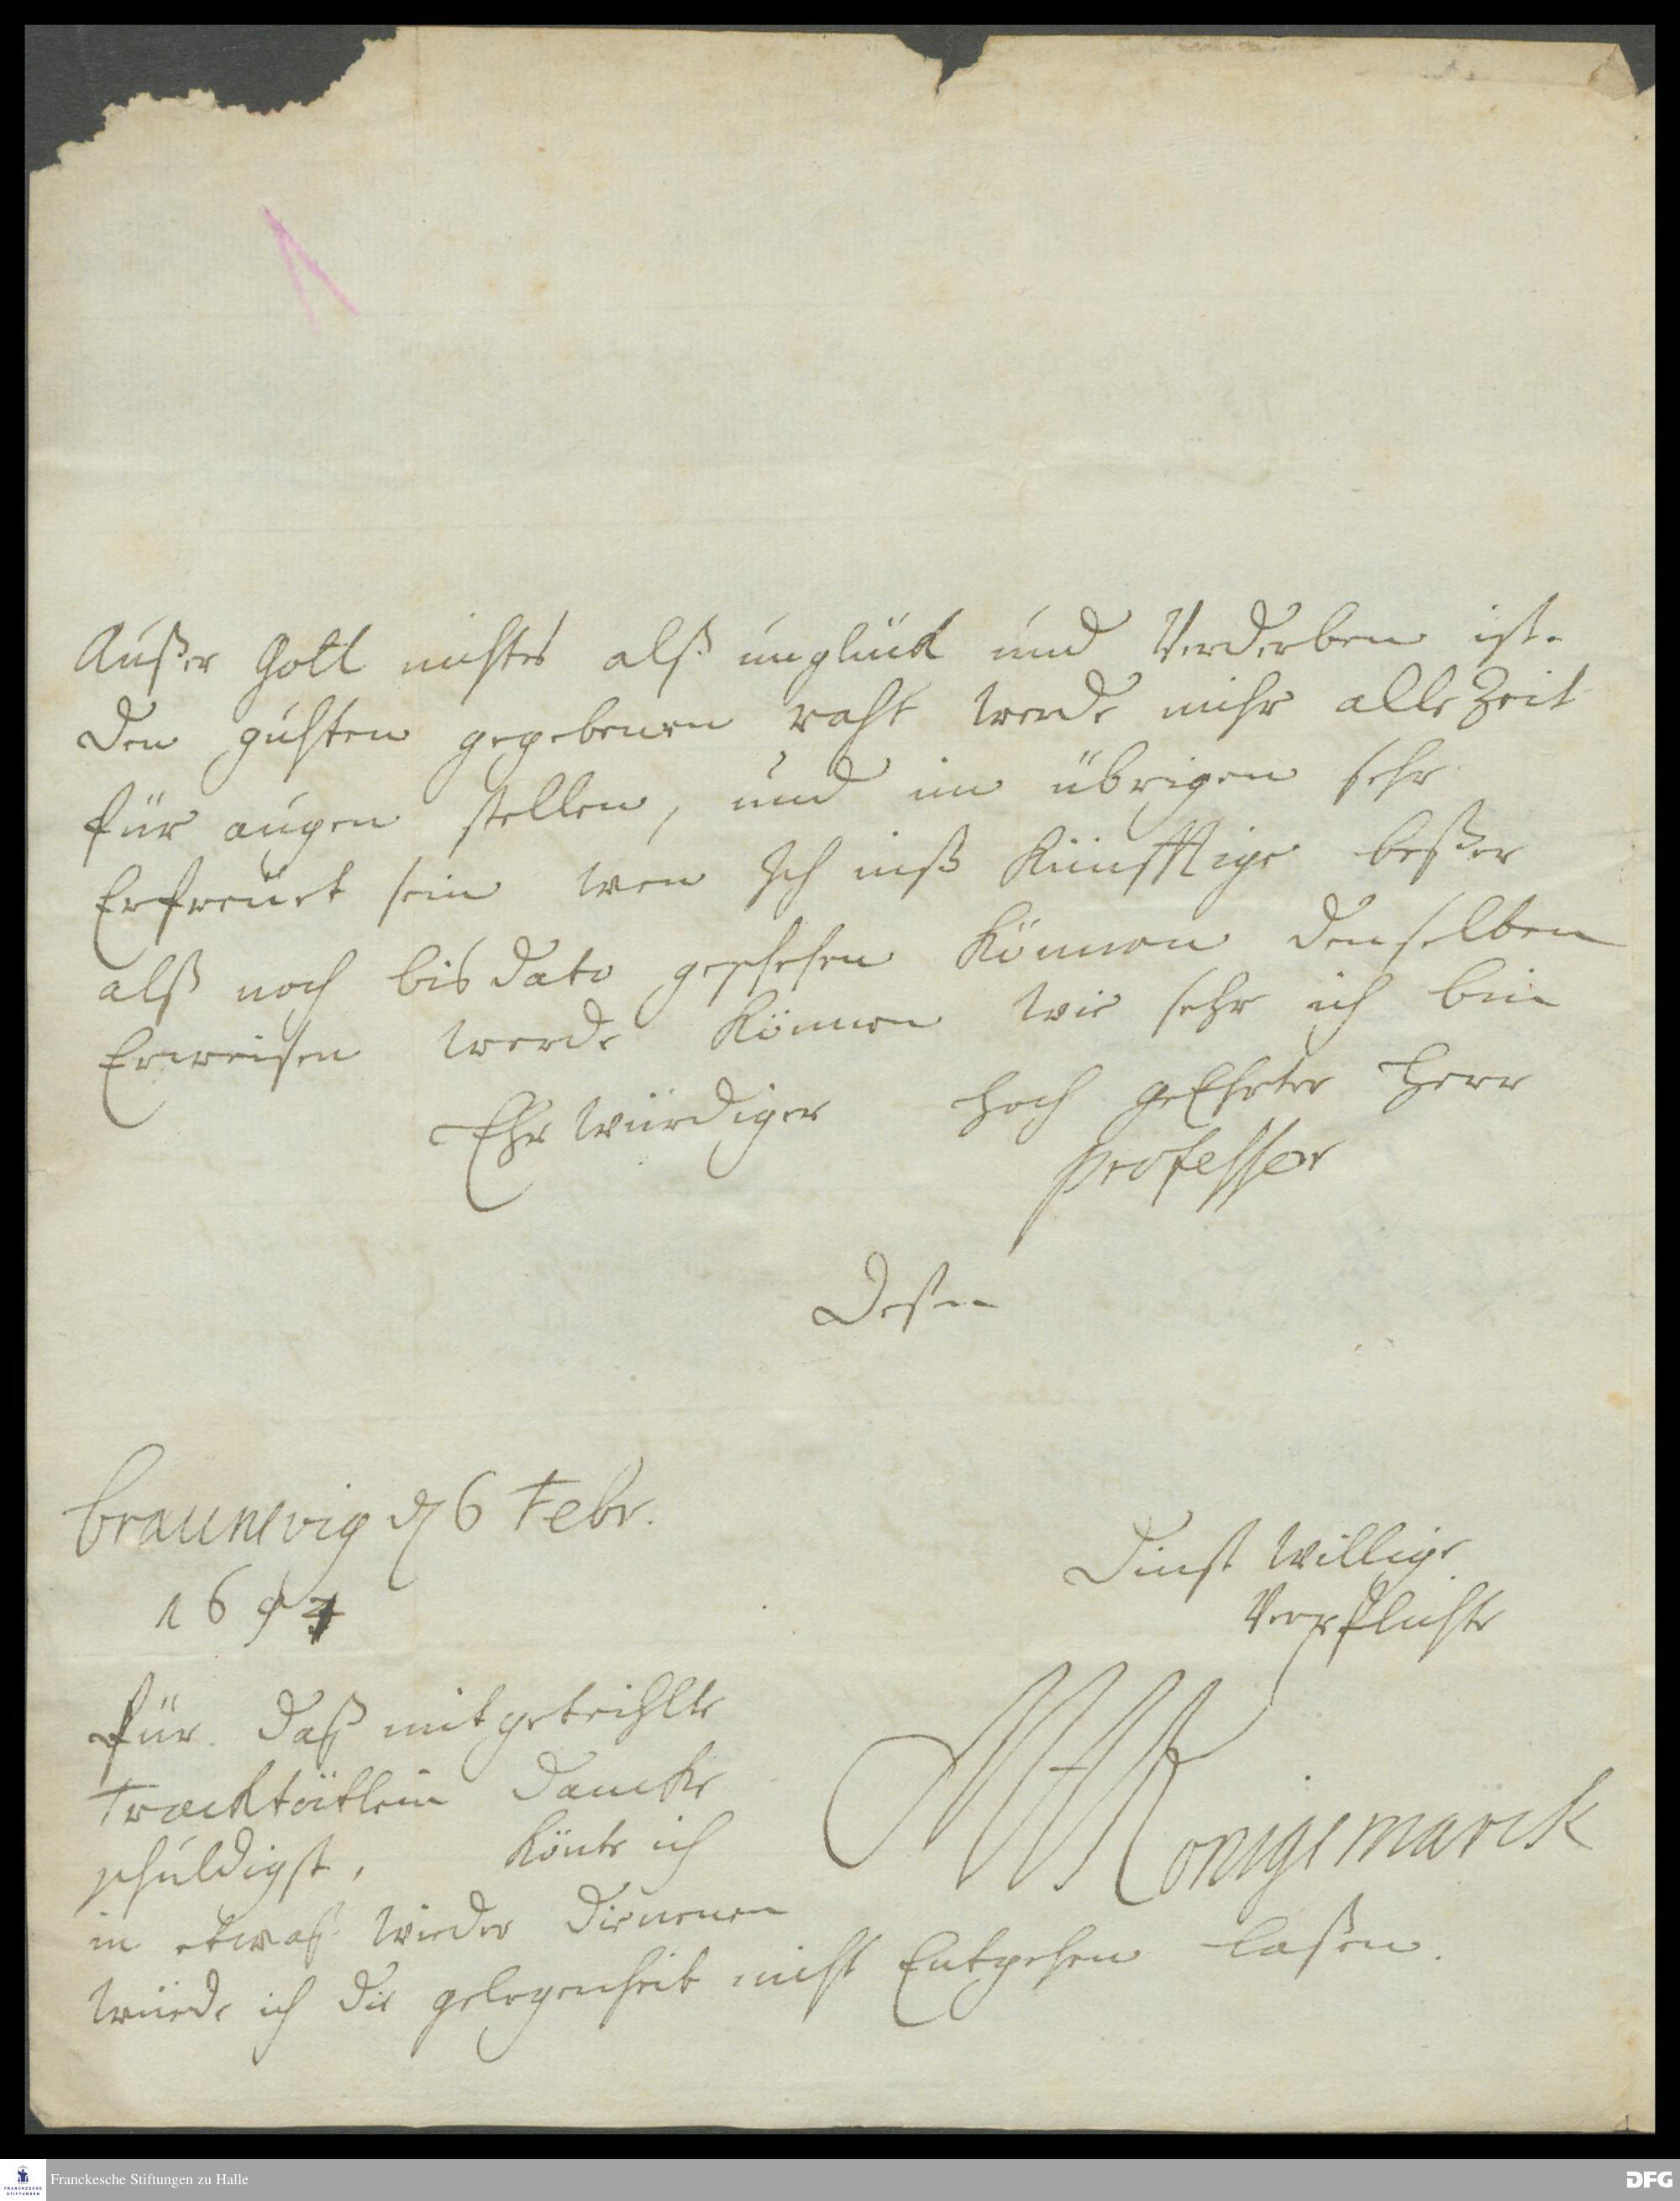 Außer Gott nichtes alß unglück und Verderben ist.
Den guhten gegebenen raht werde mihr alle Zeit
für augen stellen, und im übrigen sehr
Erfreuet sein wen Ich inß Künfftige beßer
alß noch bis dato geschehen Können denselben
Erweisen werde Können wie sehr ich bin
Ehr Würdiger hoch geEhrter Herr
professor
Deßen
braunsvig d 6 Febr.
Dinst Willige
Verpflichte
für daß mitgeteihlte
Tracktätlein dancke
schuldigst, Könte ich
Konigsmarck
in etwaß wieder dienenen
würde ich die gelegenheit nicht Entgehen laßen.
Franckesche Stiftungen zu Halle
FRANCKESCHE STIFTUNGEN
DFG